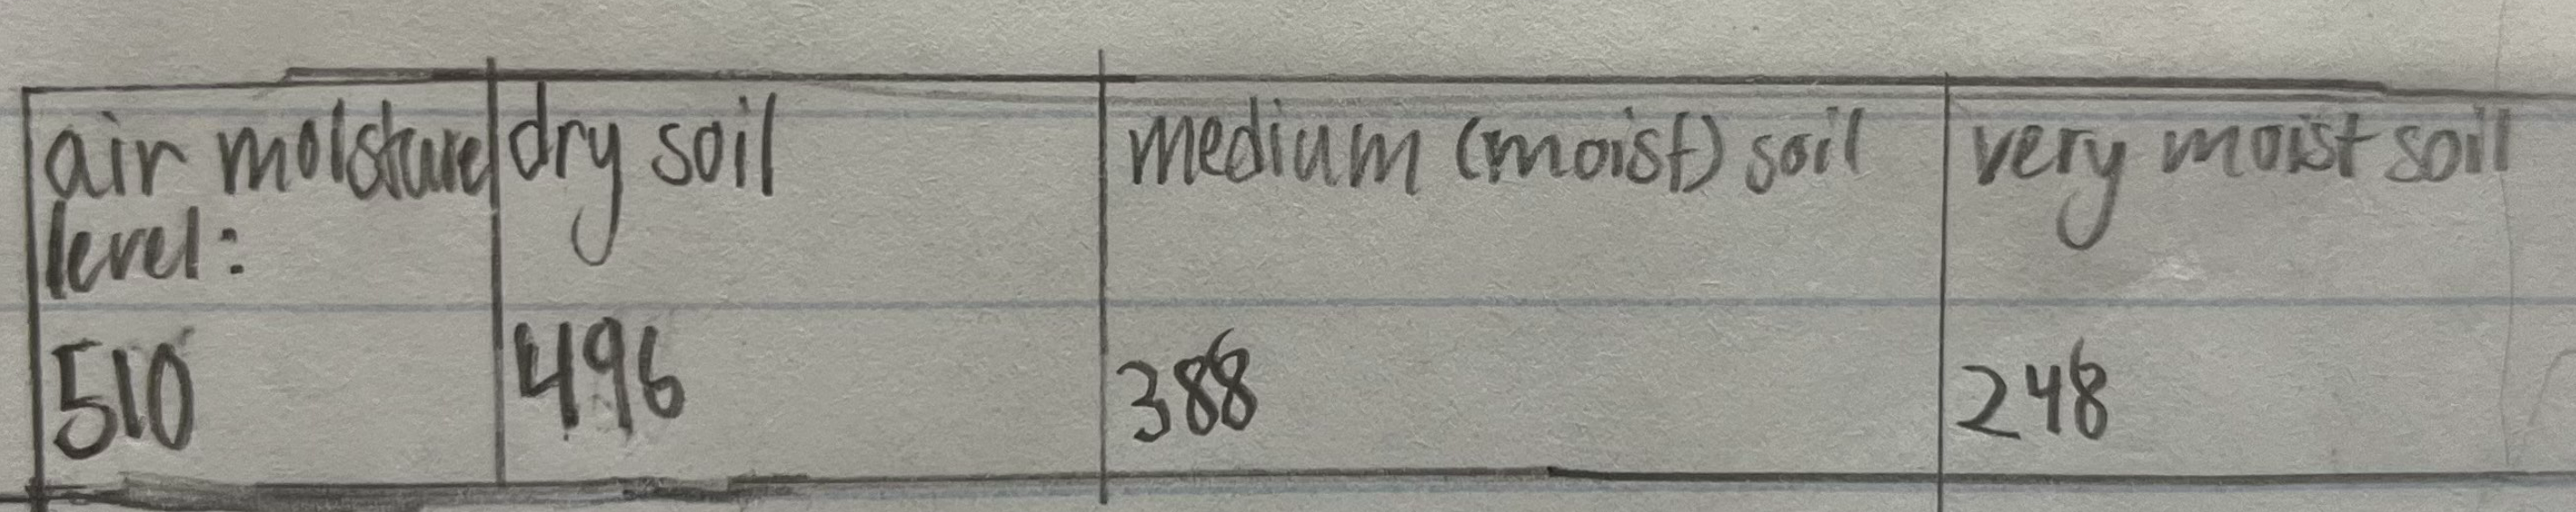 air moisture level: | dry soil | medium (moist) soil | very moist soil
510 | 496 | 388 | 248